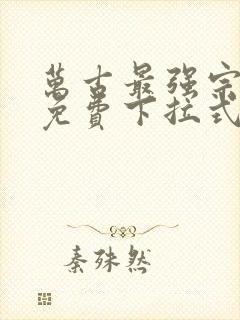 萬古最强宗
免費下拉式
秦殊然